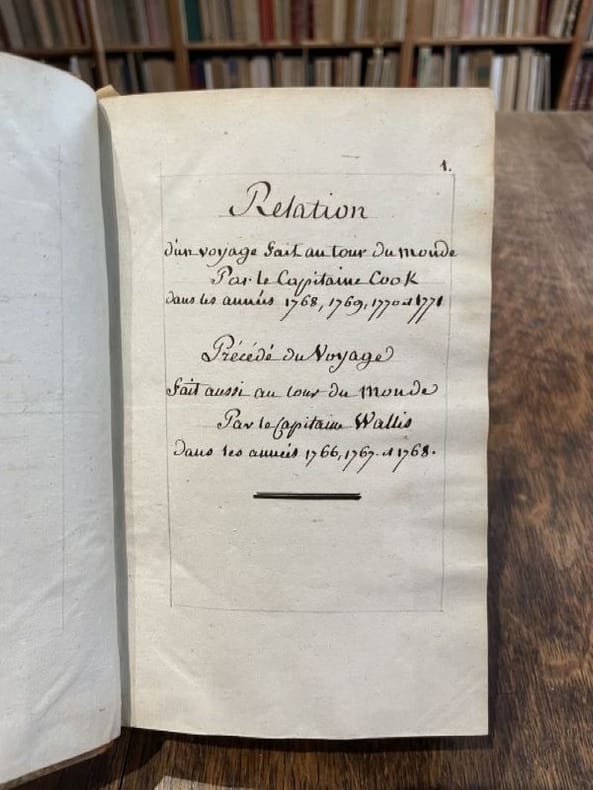 1.
Relation
d'un voyage fait au tour du monde
Par le Capitaine Cook
dans les années 1768, 1769, 1770 et 1771
Précédé du Voyage
fait aussi au tour du Monde
Par le Capitaine Wallis
dans les années 1766, 1767 et 1768.